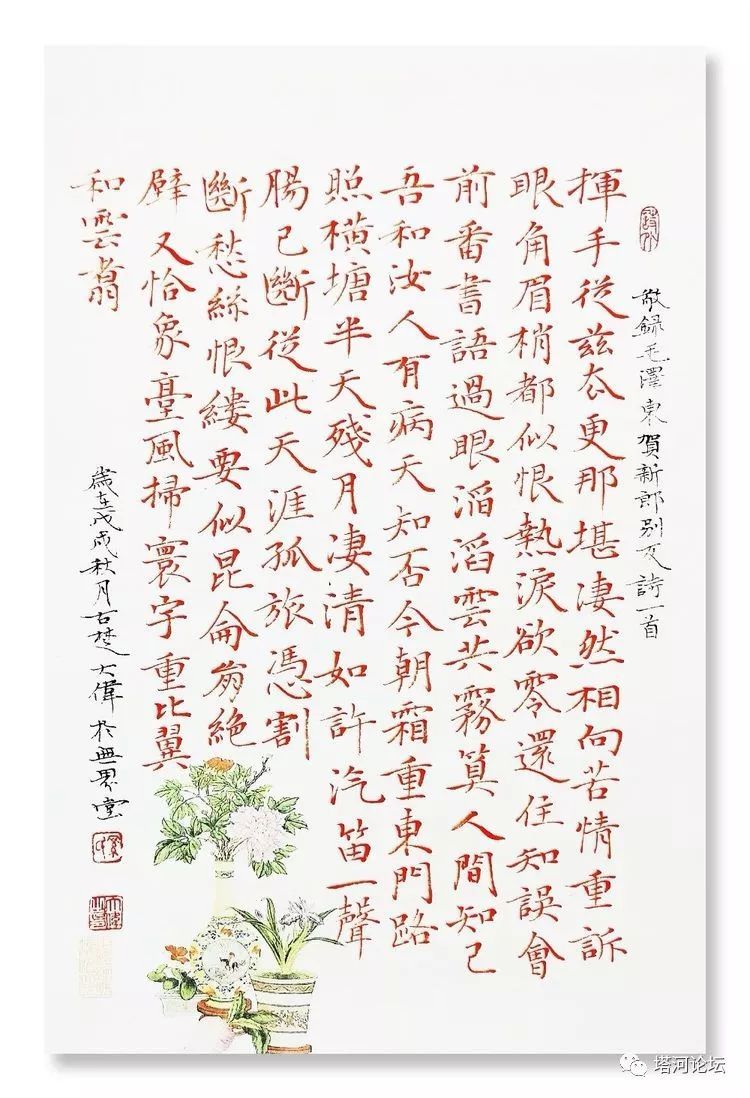 敬録毛澤東賀新郎别友詩一首
揮手從兹去更那堪凄然相向苦情重訴
眼角眉梢都似恨熱淚欲零還住知誤會
前番書語過眼滔滔雲共霧算人間知己
吾和汝人有病天知否今朝霜重東門路
照横塘半天殘月凄清如許汽笛一聲
腸已斷從此天涯孤旅憑割
斷愁絲恨縷要似昆侖崩絶
壁又恰象臺風掃寰宇重比翼
和雲翥
歲在戊戌秋月古楚大偉於無界堂
塔河论坛